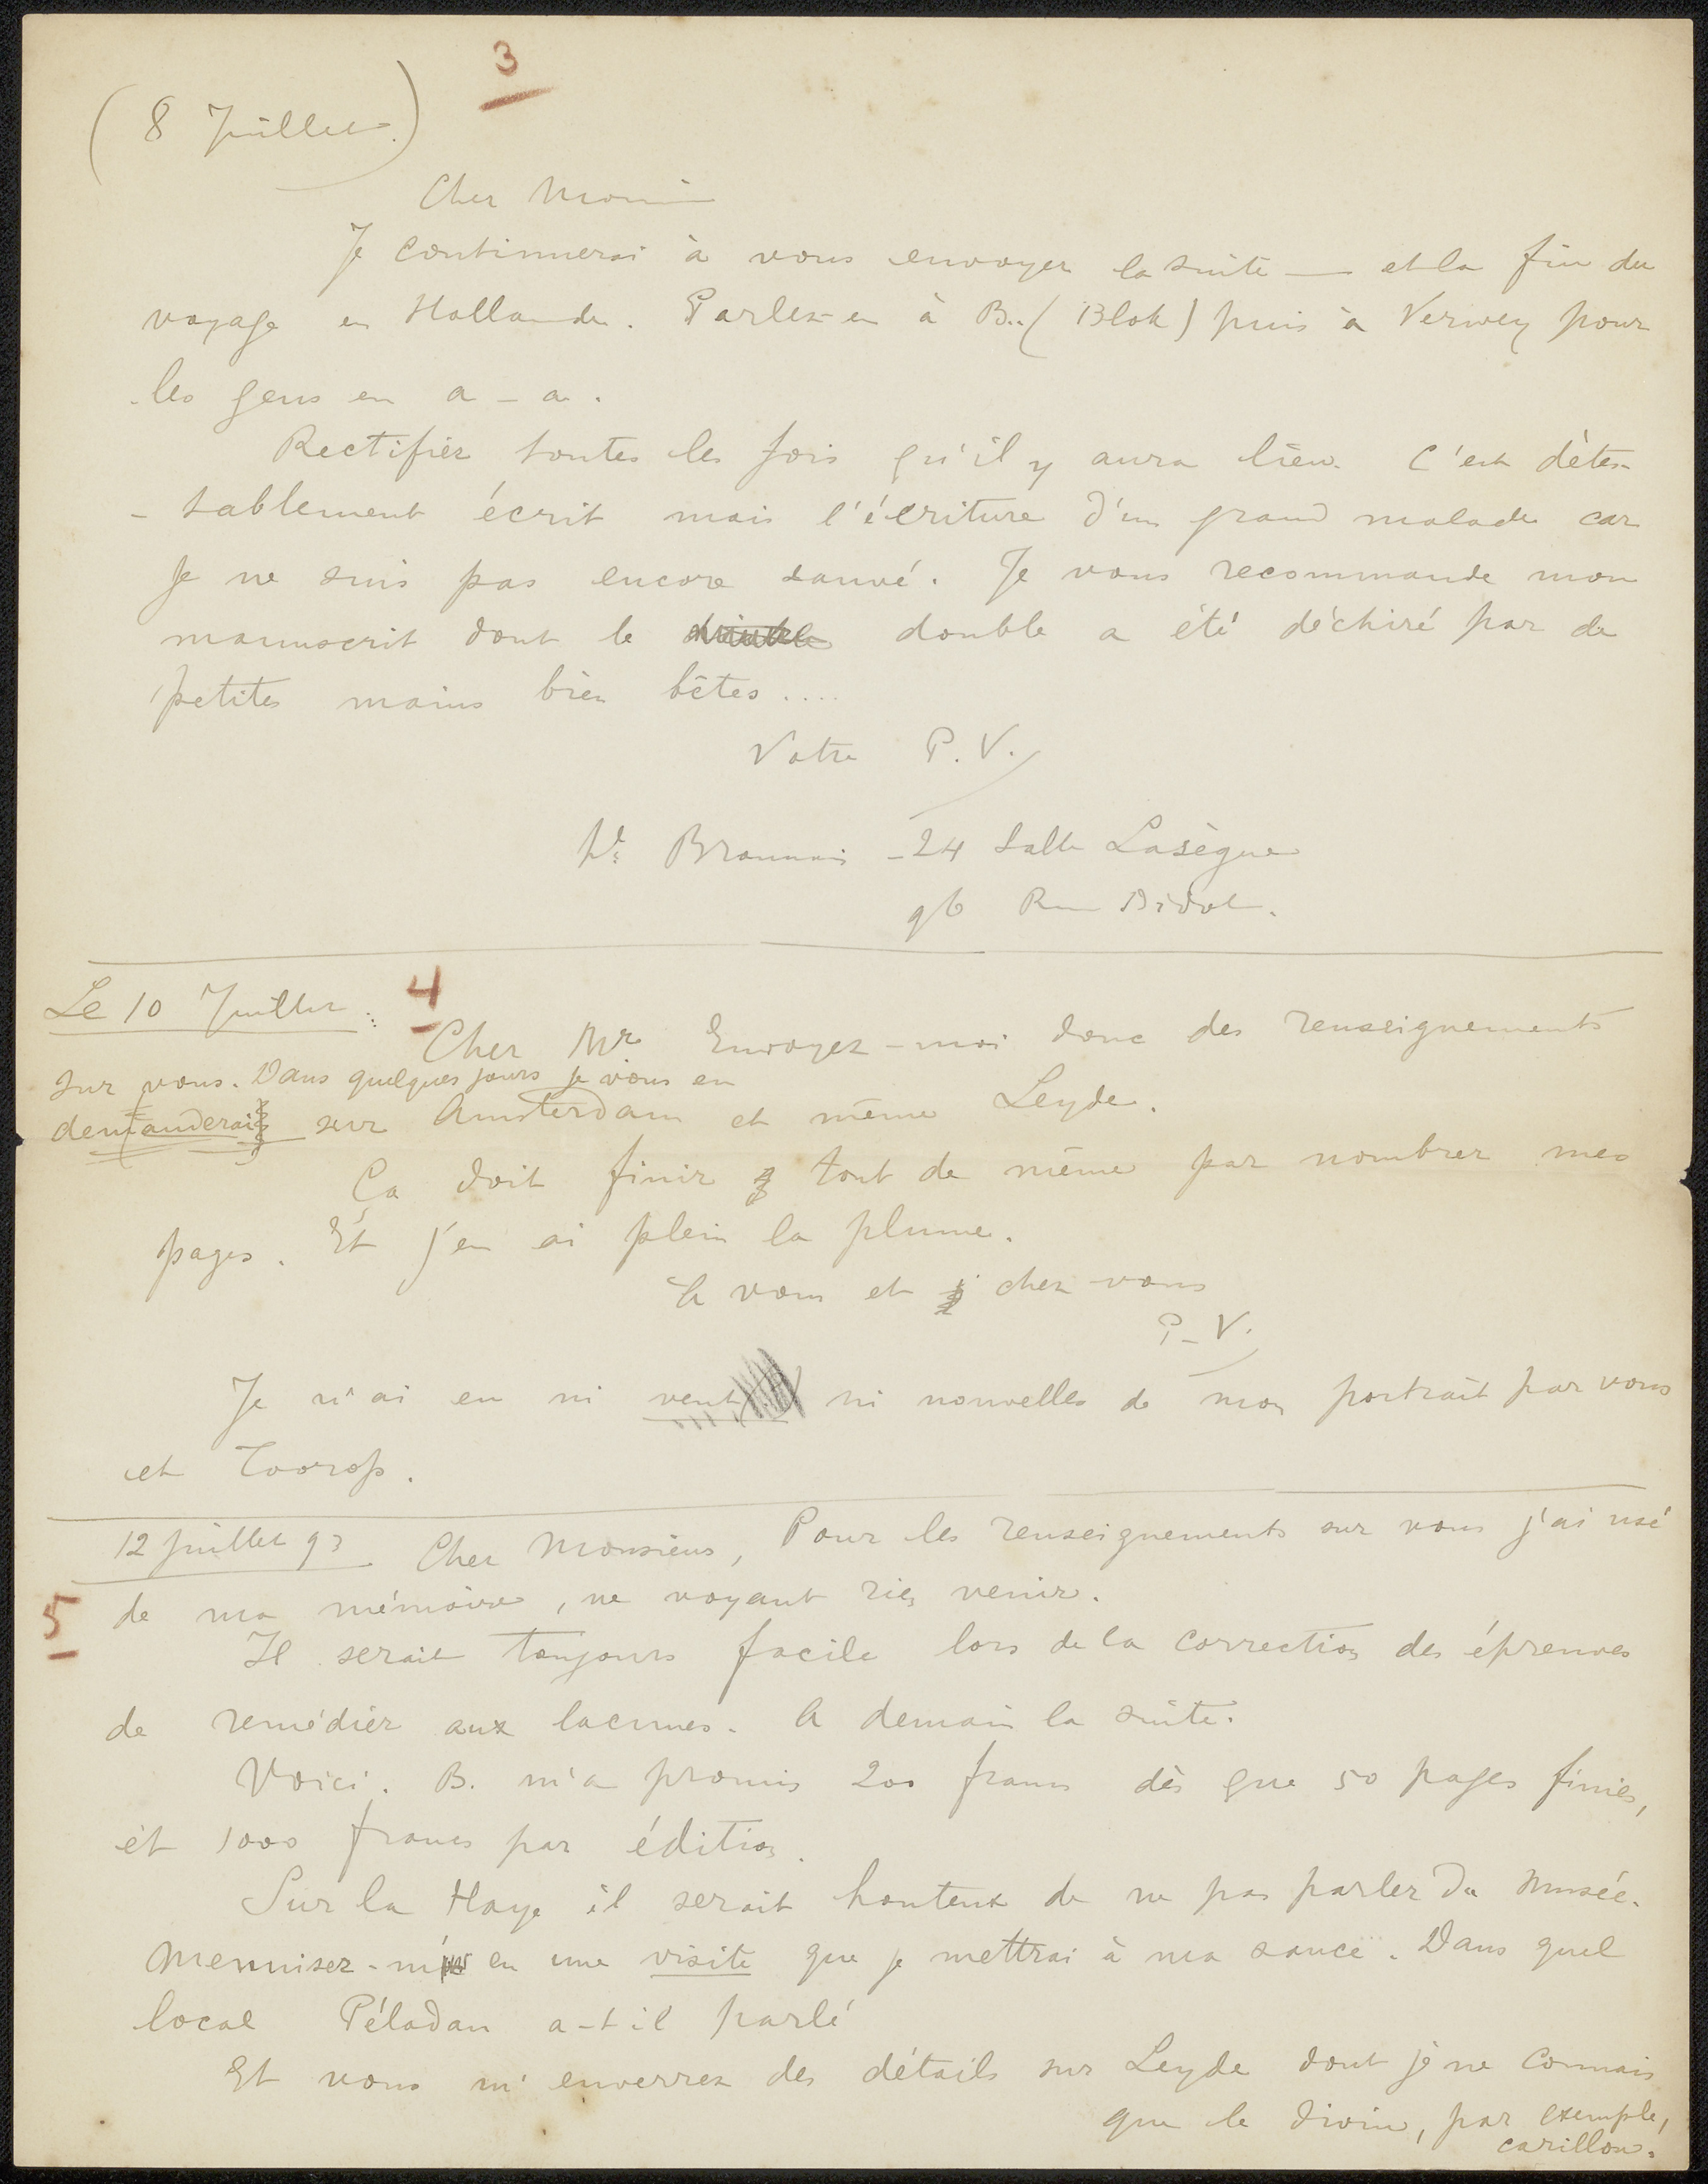 3
(8 Juillet.)
Cher Monsieur
Je continuerai à vous envoyer la suite — et la fin du
voyage en Hollande. Parlez-en à B.. (Blok) puis à Verwey pour
les gens en a - a.
Rectifier toutes les fois qu'il y aura lieu. C'est détes-
- tablement écrit mais l'écriture d'un grand malade car
je ne suis pas encore sauvé. Je vous recommande mon
manuscrit dont le double a été déchiré par de
petites mains bien bêtes....
Votre P. V.
Hal Broussais - 24 Salle Lasègue
96 Rue Didot.
Le 10 Juillet : 4
Cher Mr Envoyez-moi donc des renseignements
sur vous. Dans quelques jours je vous en
demanderai sur Amsterdam et même Leyde.
Ça doit finir tout de même par nombrer mes
pages. Et j'en ai plein la plume.
A vous et chez vous
P. V.
Je n'ai eu ni vent ni nouvelles de mon portrait par vous
et Toorop.
12 juillet 93 Cher Monsieur, Pour les renseignements sur vous j'ai usé
5 de ma mémoire, ne voyant rien venir.
Il serait toujours facile lors de la correction des épreuves
de remédier aux lacunes. A demain la suite.
Voici. B. m'a promis 200 francs dès que 50 pages finies,
et 1000 francs par édition.
Sur la Haye il serait honteux de ne pas parler du Musée.
en une visite que je mettrai à ma sauce. Dans quel
local Péladan a-t-il parlé
Et vous m'enverrez des détails sur Leyde dont je ne connais
que le divin, par exemple,
carillon.